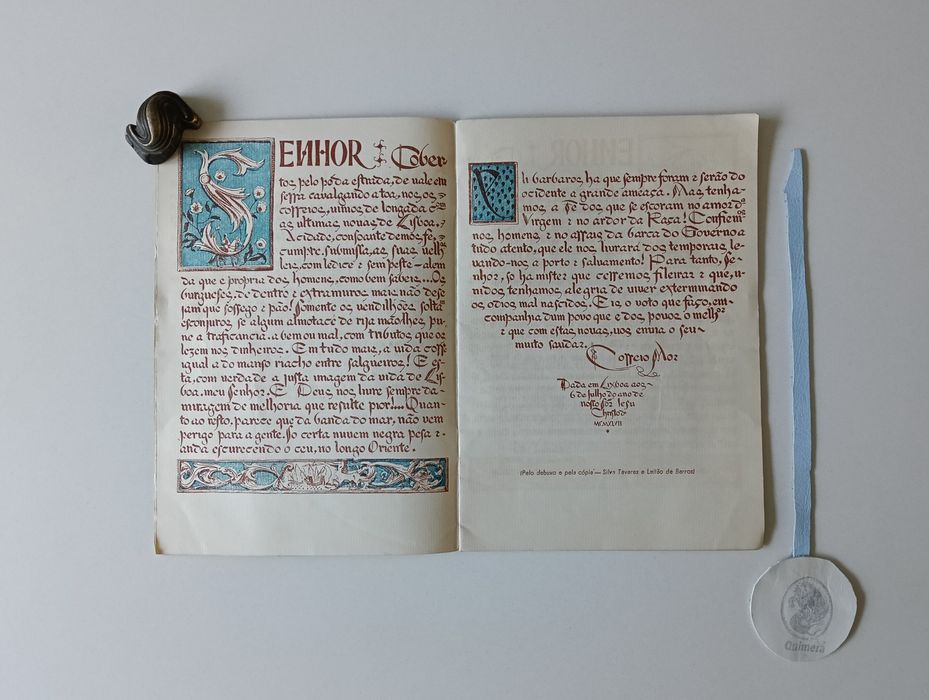 SENHOR : Cober-
tos pelo pó da estrada, de vale em
sessa cavalgando a toa, nos os
cosseios, uimos de longada c
as ultimas nouas de Lisboa.
A cidade, consoante demos fe,
cumpre, submissa, as suas uelh
leis, com ledice e sem peste — alem
da que e propria dos homens, como bem sabeis... Os
burgueses, de dentro e extramuros mais não dese
jam que sossego e pão! Somente os vendilhões soltã
esconjuros se algum almotacé de rija mão lhes pu-
ne a traficancia, a bem ou mal, com tributos que os
lezem nos dinheiros. Em tudo mais, a uida coss
igual a do manso riacho entre salgueiros! E es-
ta, com verdade a justa imagem da uida de Lis-
boa, meu senhor. E Deus nos liure sempre da
miragem de melhoria que resulte pior!... Quan-
to ao resto, parece que da banda do mar, não vem
perigo para a gente. So certa nuvem negra pesa e
anda escurecendo o ceu, no longo Oriente.
Ali barbaros, ha que sempre foram e serão do
ocidente a grande ameaça. Mas tenha-
mos, a Fé dos que se escoram no amor da
Virgem e no ardor da Raça! Confiem
nos homens e no assais da barca do Governo a
tudo atento, que ele nos liurará dos temporais le-
vando-nos a porto e saluamento! Para tanto, Se-
nhor, so ha mister que cessemos fileiras e que, u-
nidos tenhamos alegria de uiuer exterminando
os odios mal nascidos. Eis o voto que faço, em
companhia dum povo que e dos pouos o melhor
e que com estas nouas, uos enuia o seu
muito saudar.
Cosseio Mor
Dada em Lixboa aos
6 de julho do ano de
nosso Sõr Iesu
Christo de
MCMXLVII
(Pelo debuxo e pela cópia — Silva Tavares e Leitão de Barros)
Quimera